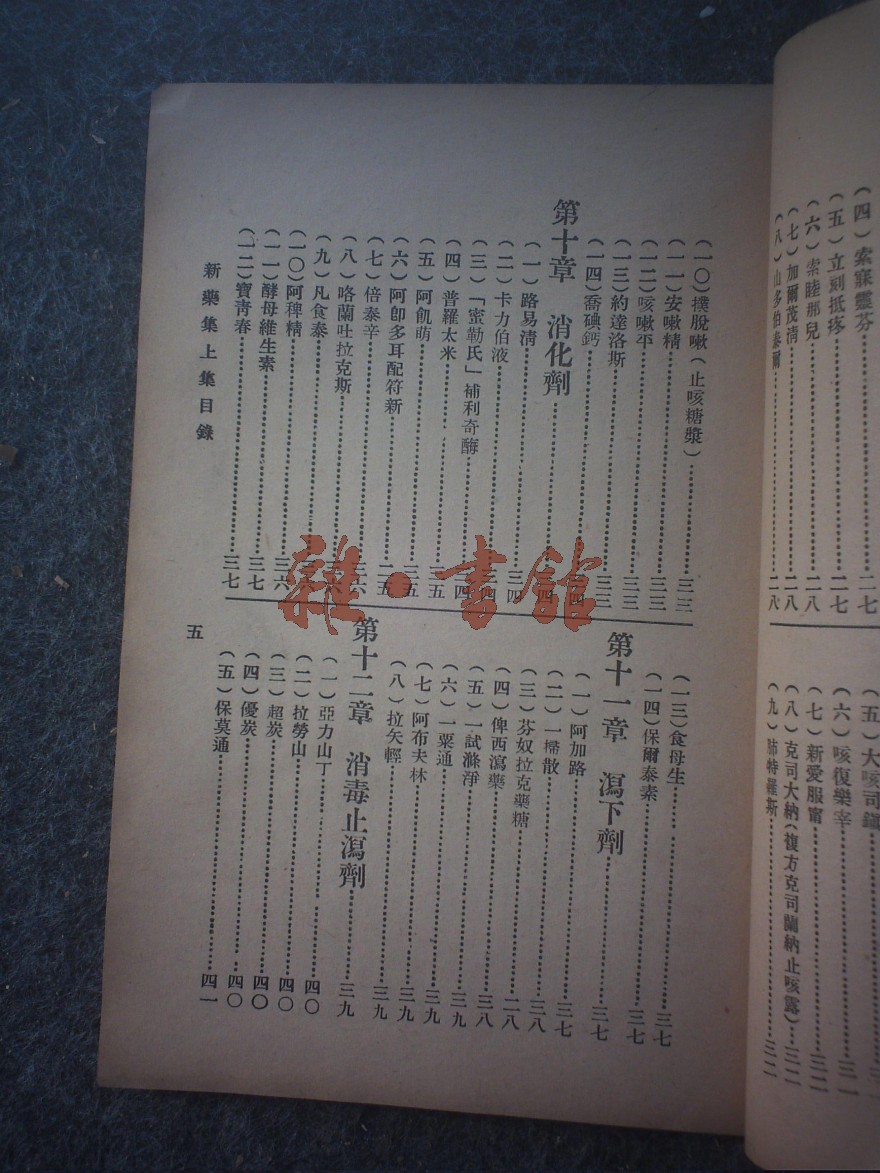 (四)索寐靈芬……二七
(五)立刻抵疼……二七
(六)索睦那兒……二八
(七)加爾茂清……二八
(八)山多伯泰爾……二八
(五)大咳司鐵
(六)咳復樂辛
(七)新愛服甯……三二
(八)克司大納(複方克司蘭納止咳露)……三二
(九)肺特羅斯……三二
(一〇)撲脫嗽(止咳糖漿)……三三
(一一)安嗽精……三三
(一二)咳嗽平……三三
(一三)約達洛斯……三三
(一四)喬碘鈣……三三
第十章 消化劑……三四
(一)路易淸……三四
(二)卡力伯液……三四
(三)「蜜勒氏」補利奇酶……三四
(四)普羅太米……三四
(五)阿飢萌……三五
(六)阿卽多耳配符新……三五
(七)倍泰辛……二五
(八)咯蘭吐拉克斯……三六
(九)凡食泰
(一〇)阿稗精……三六
(一一)酵母維生素……三七
(一二)寶靑春……三七
(一三)食母生……三七
(一四)保爾泰素……三七
第十一章 瀉下劑……三七
(一)阿加路……三七
(二)一掃散……三八
(三)芬奴拉克藥糖……二八
(四)俾西瀉藥……三八
(五)一試滌淨……三九
(六)一粟通……三九
(七)阿布夫林……三九
(八)拉矢輕……三九
第十二章 消毒止瀉劑……三九
(一)亞力山丁……四〇
(二)拉勞山……四〇
(三)超炭……四〇
(四)優炭……四〇
(五)保莫通……四一
新藥集上集目錄
五
雜·書館